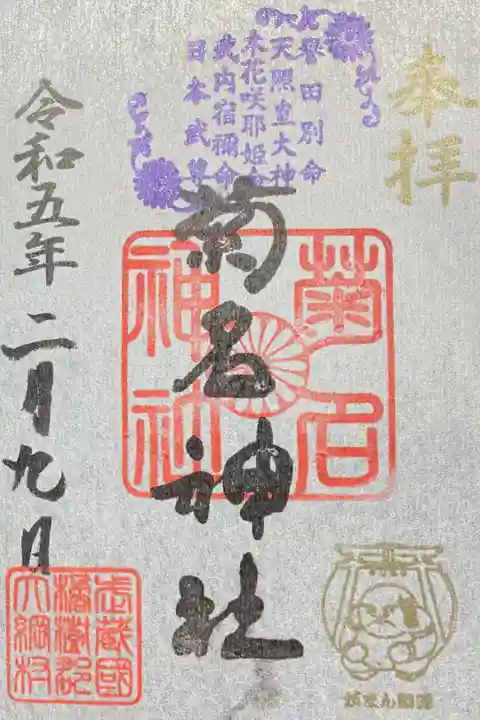 奉拝
誉田別命
天照皇大神
木花咲耶姫命
武内宿禰命
日本武尊
菊名神社
菊名
神社
令和五年二月九日
武蔵國
橘樹郡
大綱村
がまんさま